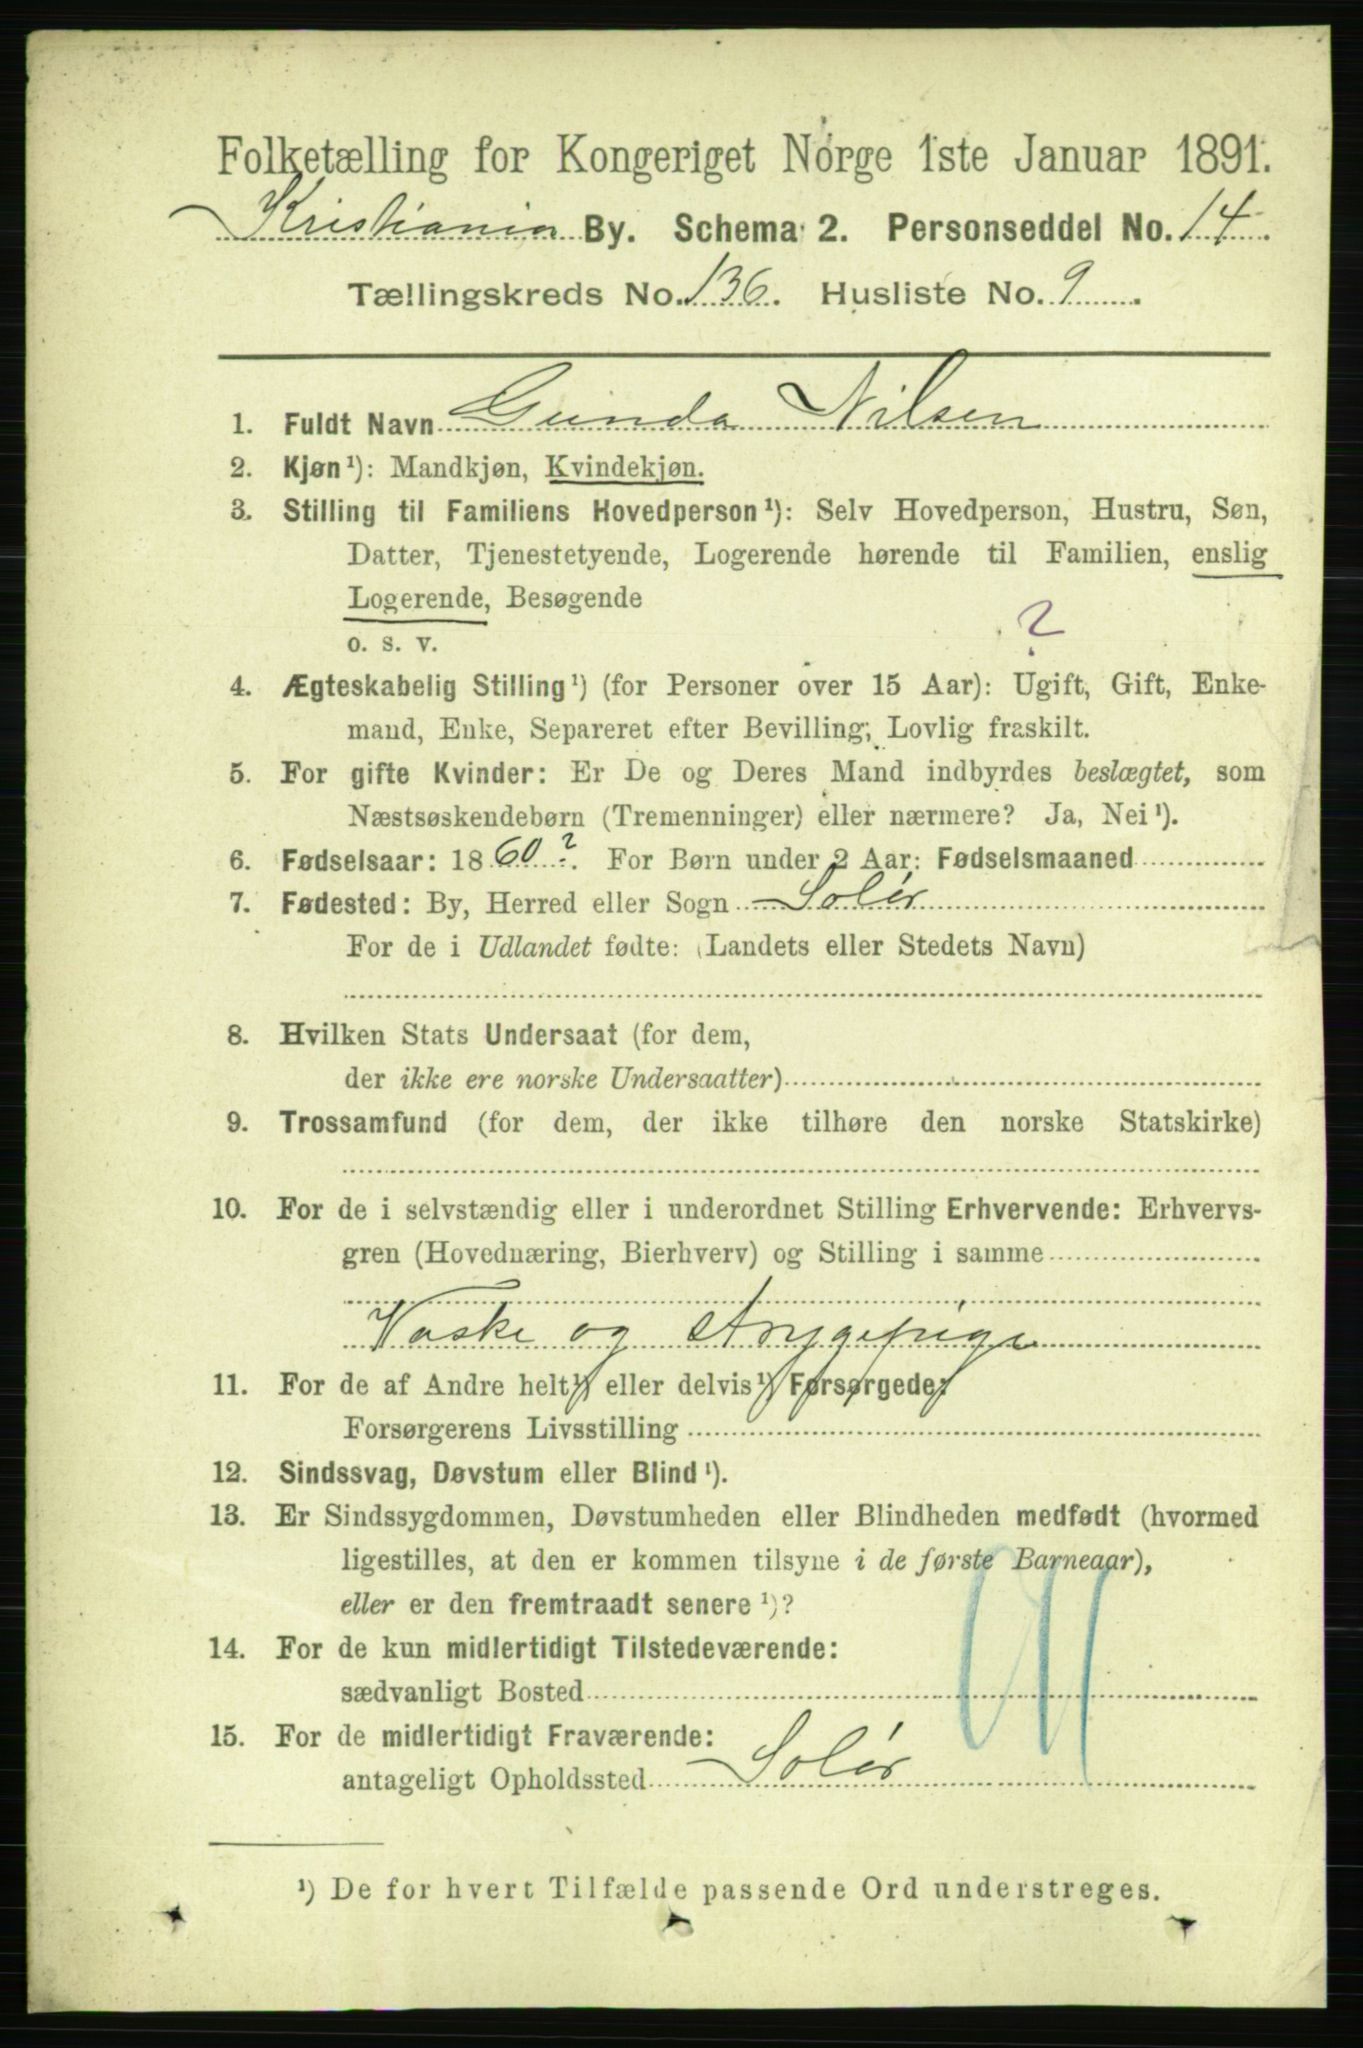 Folketælling for Kongeriget Norge 1ste Januar 1891.
Kristiania By. Schema 2. Personseddel No. 14.
Tællingskreds No. 136. Husliste No. 9.
1. Fuldt Navn Gunda Nilsen
2. Kjøn¹): Mandkjøn, Kvindekjøn.
3. Stilling til Familiens Hovedperson¹): Selv Hovedperson, Hustru, Søn,
Datter, Tjenestetyende, Logerende hørende til Familien, enslig
Logerende, Besøgende
o. s. v.
?
4. Ægteskabelig Stilling¹) (for Personer over 15 Aar): Ugift, Gift, Enke-
mand, Enke, Separeret efter Bevilling, Lovlig fraskilt.
5. For gifte Kvinder: Er De og Deres Mand indbyrdes beslægtet, som
Næstsøskendebørn (Tremenninger) eller nærmere? Ja, Nei¹).
6. Fødselsaar: 1860?. For Børn under 2 Aar: Fødselsmaaned
7. Fødested: By, Herred eller Sogn Solør
For de i Udlandet fødte: (Landets eller Stedets Navn)
8. Hvilken Stats Undersaat (for dem,
der ikke ere norske Undersaatter)
9. Trossamfund (for dem, der ikke tilhøre den norske Statskirke)
10. For de i selvstændig eller i underordnet Stilling Erhvervende: Erhvervs-
gren (Hovednæring, Bierhverv) og Stilling i samme
Vaske og Strygepige
11. For de af Andre helt¹) eller delvis¹) Forsørgede:
Forsørgerens Livsstilling
12. Sindssvag, Døvstum eller Blind¹).
13. Er Sindssygdommen, Døvstumheden eller Blindheden medfødt (hvormed
ligestilles, at den er kommen tilsyne i de første Barneaar),
eller er den fremtraadt senere¹)?
14. For de kun midlertidigt Tilstedeværende:
sædvanligt Bosted
15. For de midlertidigt Fraværende:
antageligt Opholdssted Solør
¹) De for hvert Tilfælde passende Ord understreges.